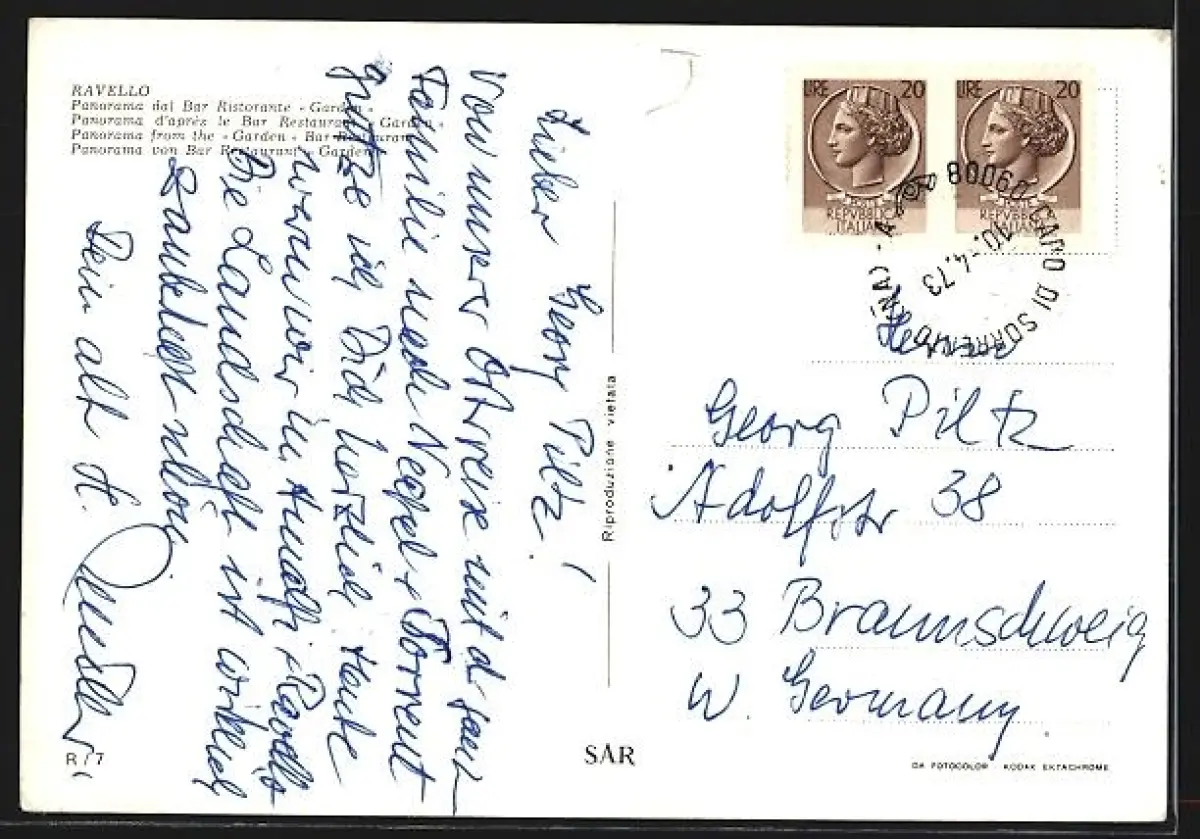 RAVELLO
Panorama dal Bar Ristorante « Garden »
Panorama d'après le Bar Restaurant « Garden »
Panorama from the « Garden » Bar Restaurant
Panorama von Bar Restaurant « Garden »
Lieber Georg Piltz !
Von unserer Ostreise mit d.
Familie nach Neapel + Sorrent
grüße ich Dich herzlich. Heute
waren wir in Amalfi + Ravello
Die Landschaft ist wirklich
schön
Dein alt H.
R / 7
Riproduzione vietata
SAR
LIRE 20
POSTE
REPVBBLICA
ITALIANA
LIRE 20
POSTE
REPVBBLICA
ITALIANA
80060 CAPO DI SORRENTO (NA) - A
10.-4.73
Herrn
Georg Piltz
Adolfstr 38
33 Braunschweig
W. Germany.
DA FOTOCOLOR KODAK EKTACHROME